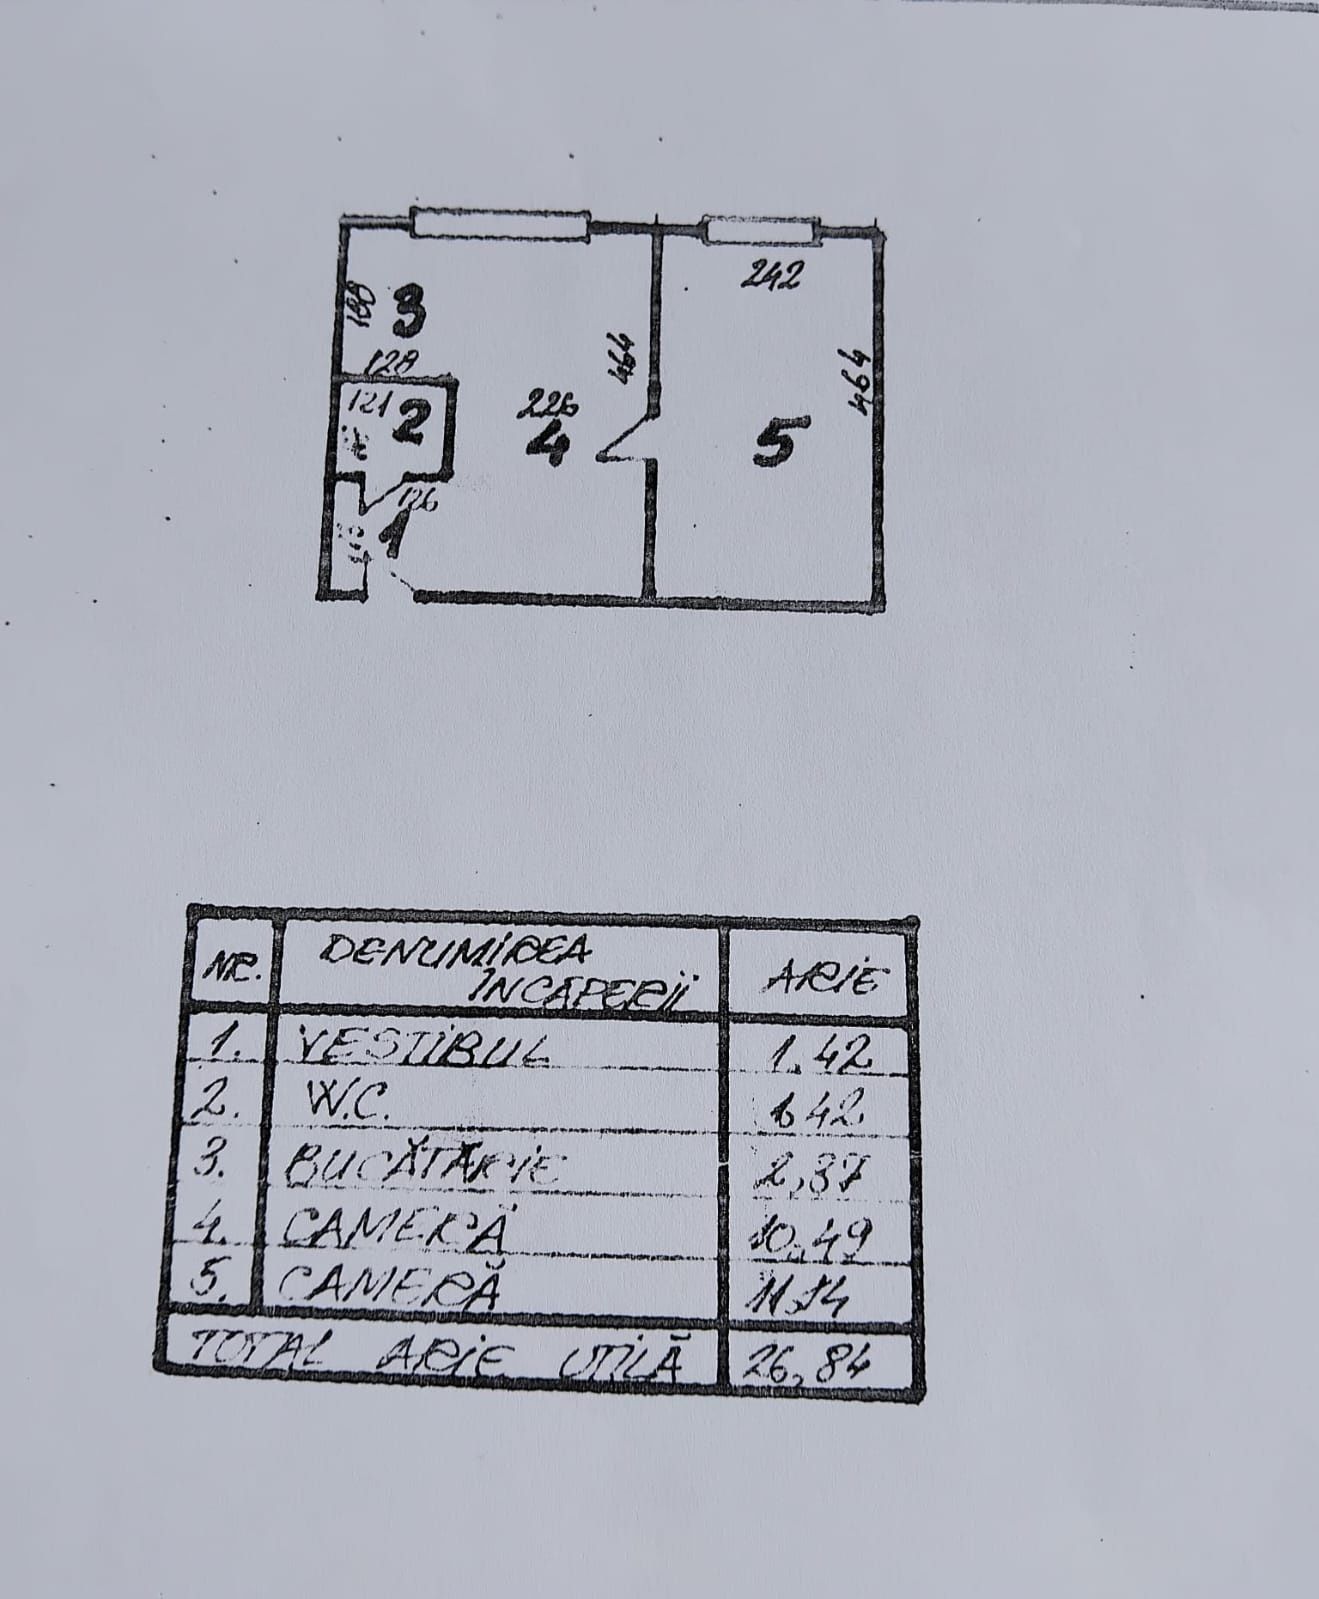 242
188
3
128
464
464
121
2
226
4
5
126
1
NR.
DENUMIREA
ÎNCĂPERII
ARIE
1. VESTIBUL 1.42
2. W.C. 1.42
3. BUCĂTĂRIE 2,37
4. CAMERĂ 10,49
5. CAMERĂ 11.14
TOTAL ARIE UTILĂ 26,84